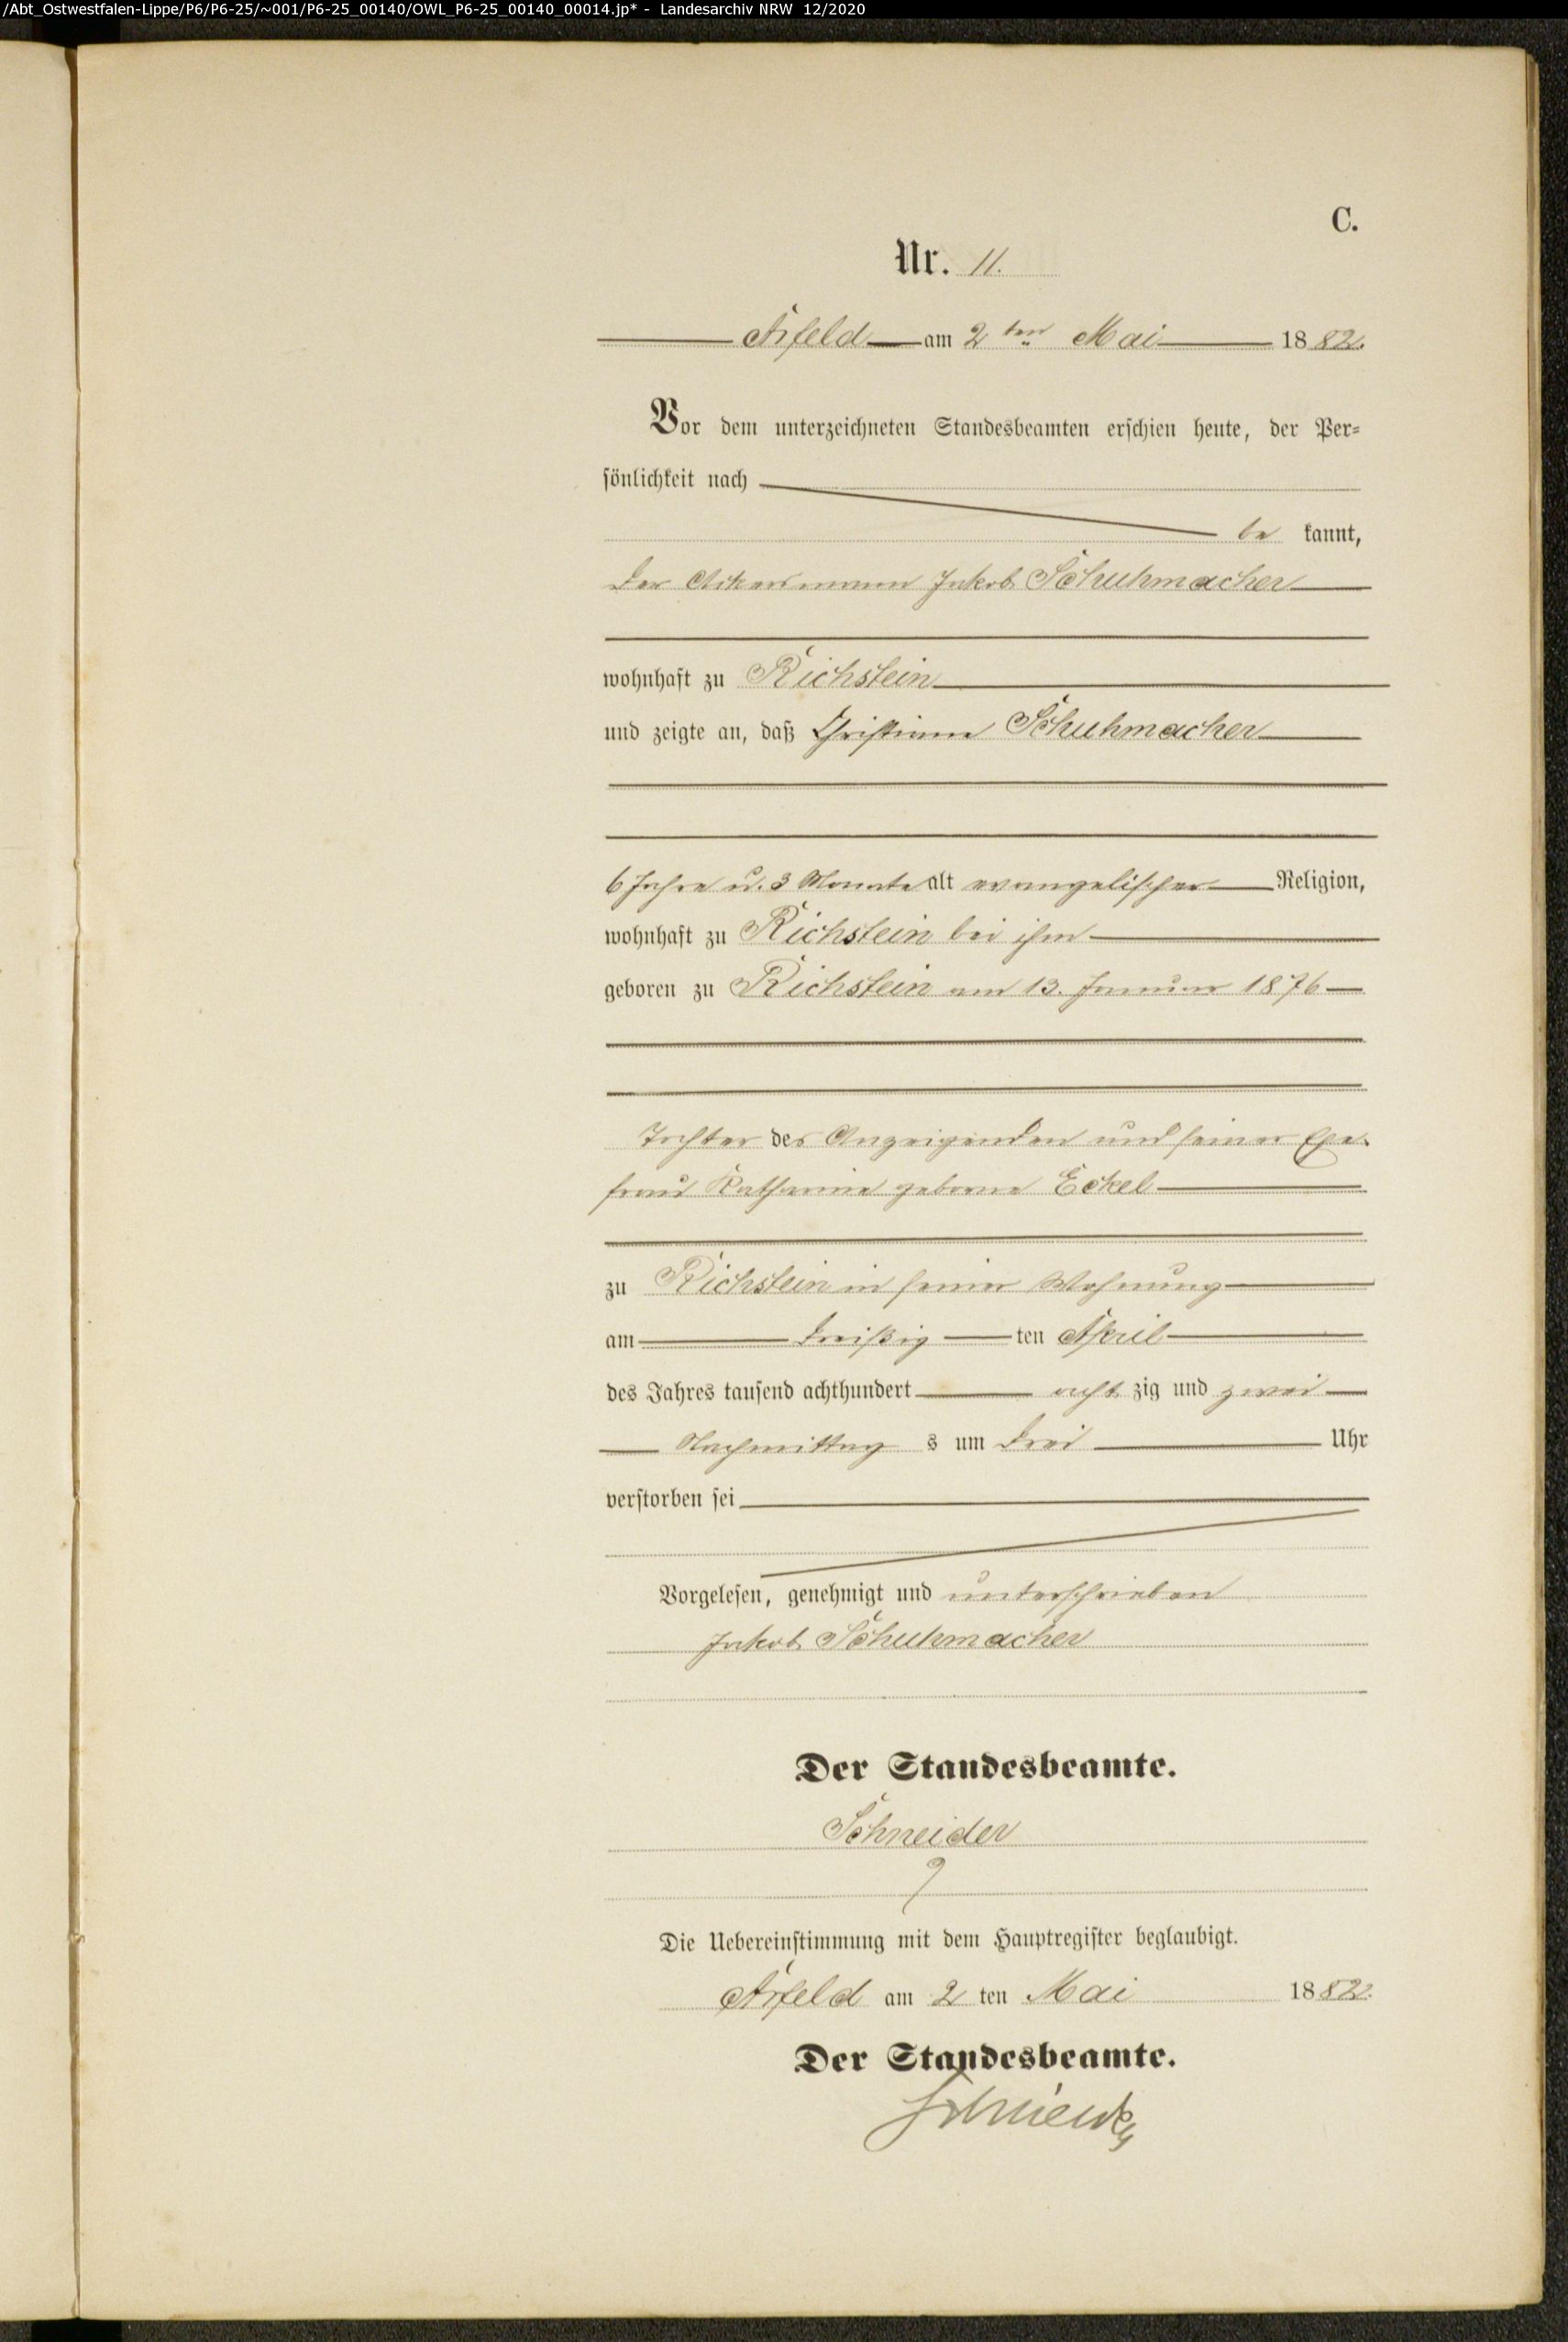 /Abt_Ostwestfalen-Lippe/P6/P6-25/~001/P6-25_00140/OWL_P6-25_00140_00014.jp* - Landesarchiv NRW 12/2020
C.
Nr. 11.
Arfeld am 2ten Mai 1882.
Vor dem unterzeichneten Standesbeamten erschien heute, der Per-
sönlichkeit nach
be kannt,
der Ackersmann Jakob Schuhmacher
wohnhaft zu Richstein
und zeigte an, daß Christiane Schuhmacher
6 Jahre u. 3 Monate alt evangelischer Religion,
wohnhaft zu Richstein bei ihm
geboren zu Richstein am 13. Januar 1876
Tochter des Anzeigenden und seiner Ehe-
frau Katharine geborne Eckel
zu Richstein in seiner Wohnung
am dreißig ten April
des Jahres tausend achthundert acht zig und zwei
Nachmittag s um drei Uhr
verstorben sei
Vorgelesen, genehmigt und unterschrieben
Jakob Schuhmacher
Der Standesbeamte.
Schneider
Die Uebereinstimmung mit dem Hauptregister beglaubigt.
Arfeld am 2 ten Mai 1882.
Der Standesbeamte.
Schneider